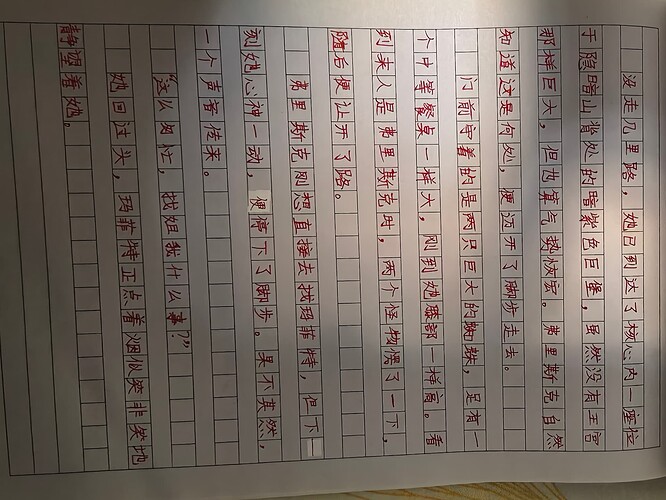 没走几里路，她已到达了核心内一座位
于隐暗山背处的暗紫色巨堡，虽然没有王宫
那样巨大，但也算气势恢宏。弗里斯克自然
知道这是何处，便迈开了脚步走去。
门前守着的是两只巨大的蜘蛛，足有一
个中等餐桌一样大，刚到她膝部一样高。看
到来人是弗里斯克时，两个怪物愣了一下，
随后便让开了路。
弗里斯克刚想直接去找玛菲特，但下一
刻她心神一动，便停下了脚步。果不其然，
一个声音传来。
“这么匆忙，找姐我什么事？”
她回过头，玛菲特正点着烟似笑非笑地
静望着她。